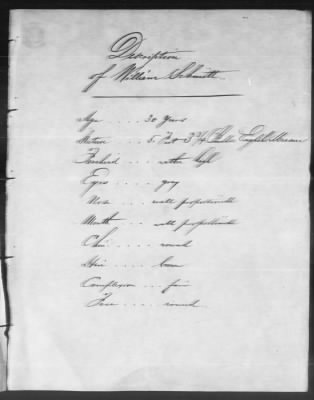 Description
of William Schmidt
Age .... 30 Years
Stature .... 5 Feet 3 3/4 English Measure
Forehead .... rather high
Eyes .... gray
Nose .... well proportioned
Mouth .... well proportioned
Chin .... round
Hair ....
Complexion .... fair
Face .... round